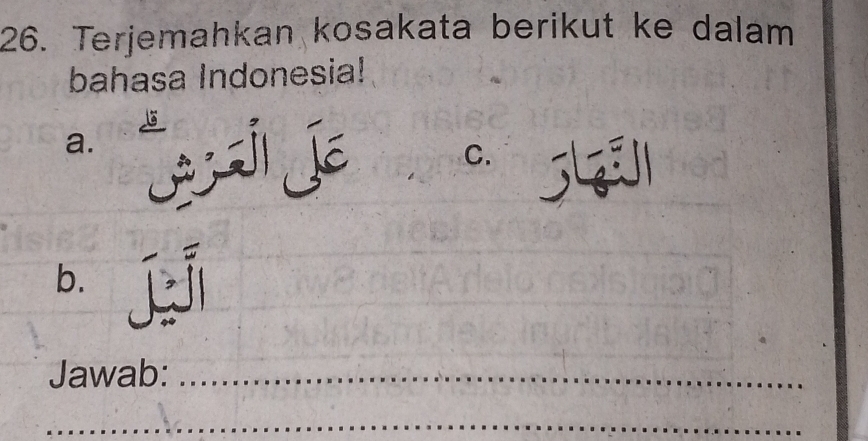 26. Terjemahkan kosakata berikut ke dalam
bahasa Indonesia!
a. عَلَى الْعَرْشِۗ c. النَّهَارَ
b. الَّيْلَ
Jawab: ................................................
................................................